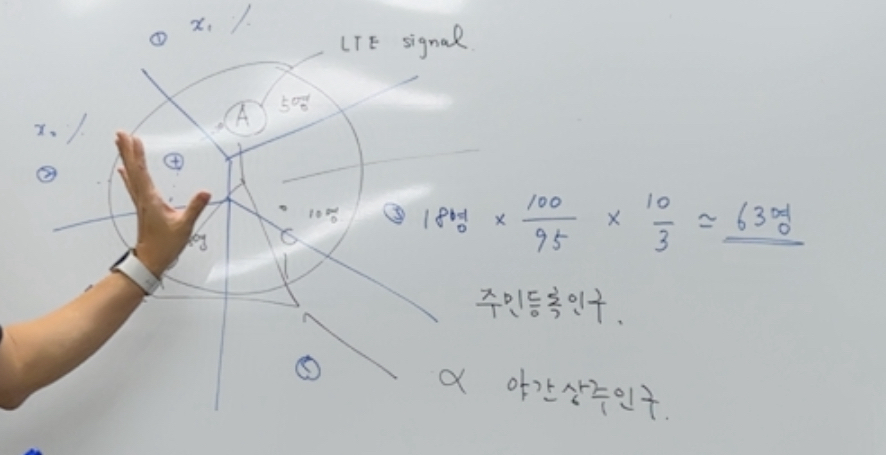 ① x₁ %
LTE signal.
A 5명
x₂ %
②
④
10명
C
③ 18명 × 100/95 × 10/3 ≃ 63명
주민등록인구.
⑤
∝ 야간상주인구.